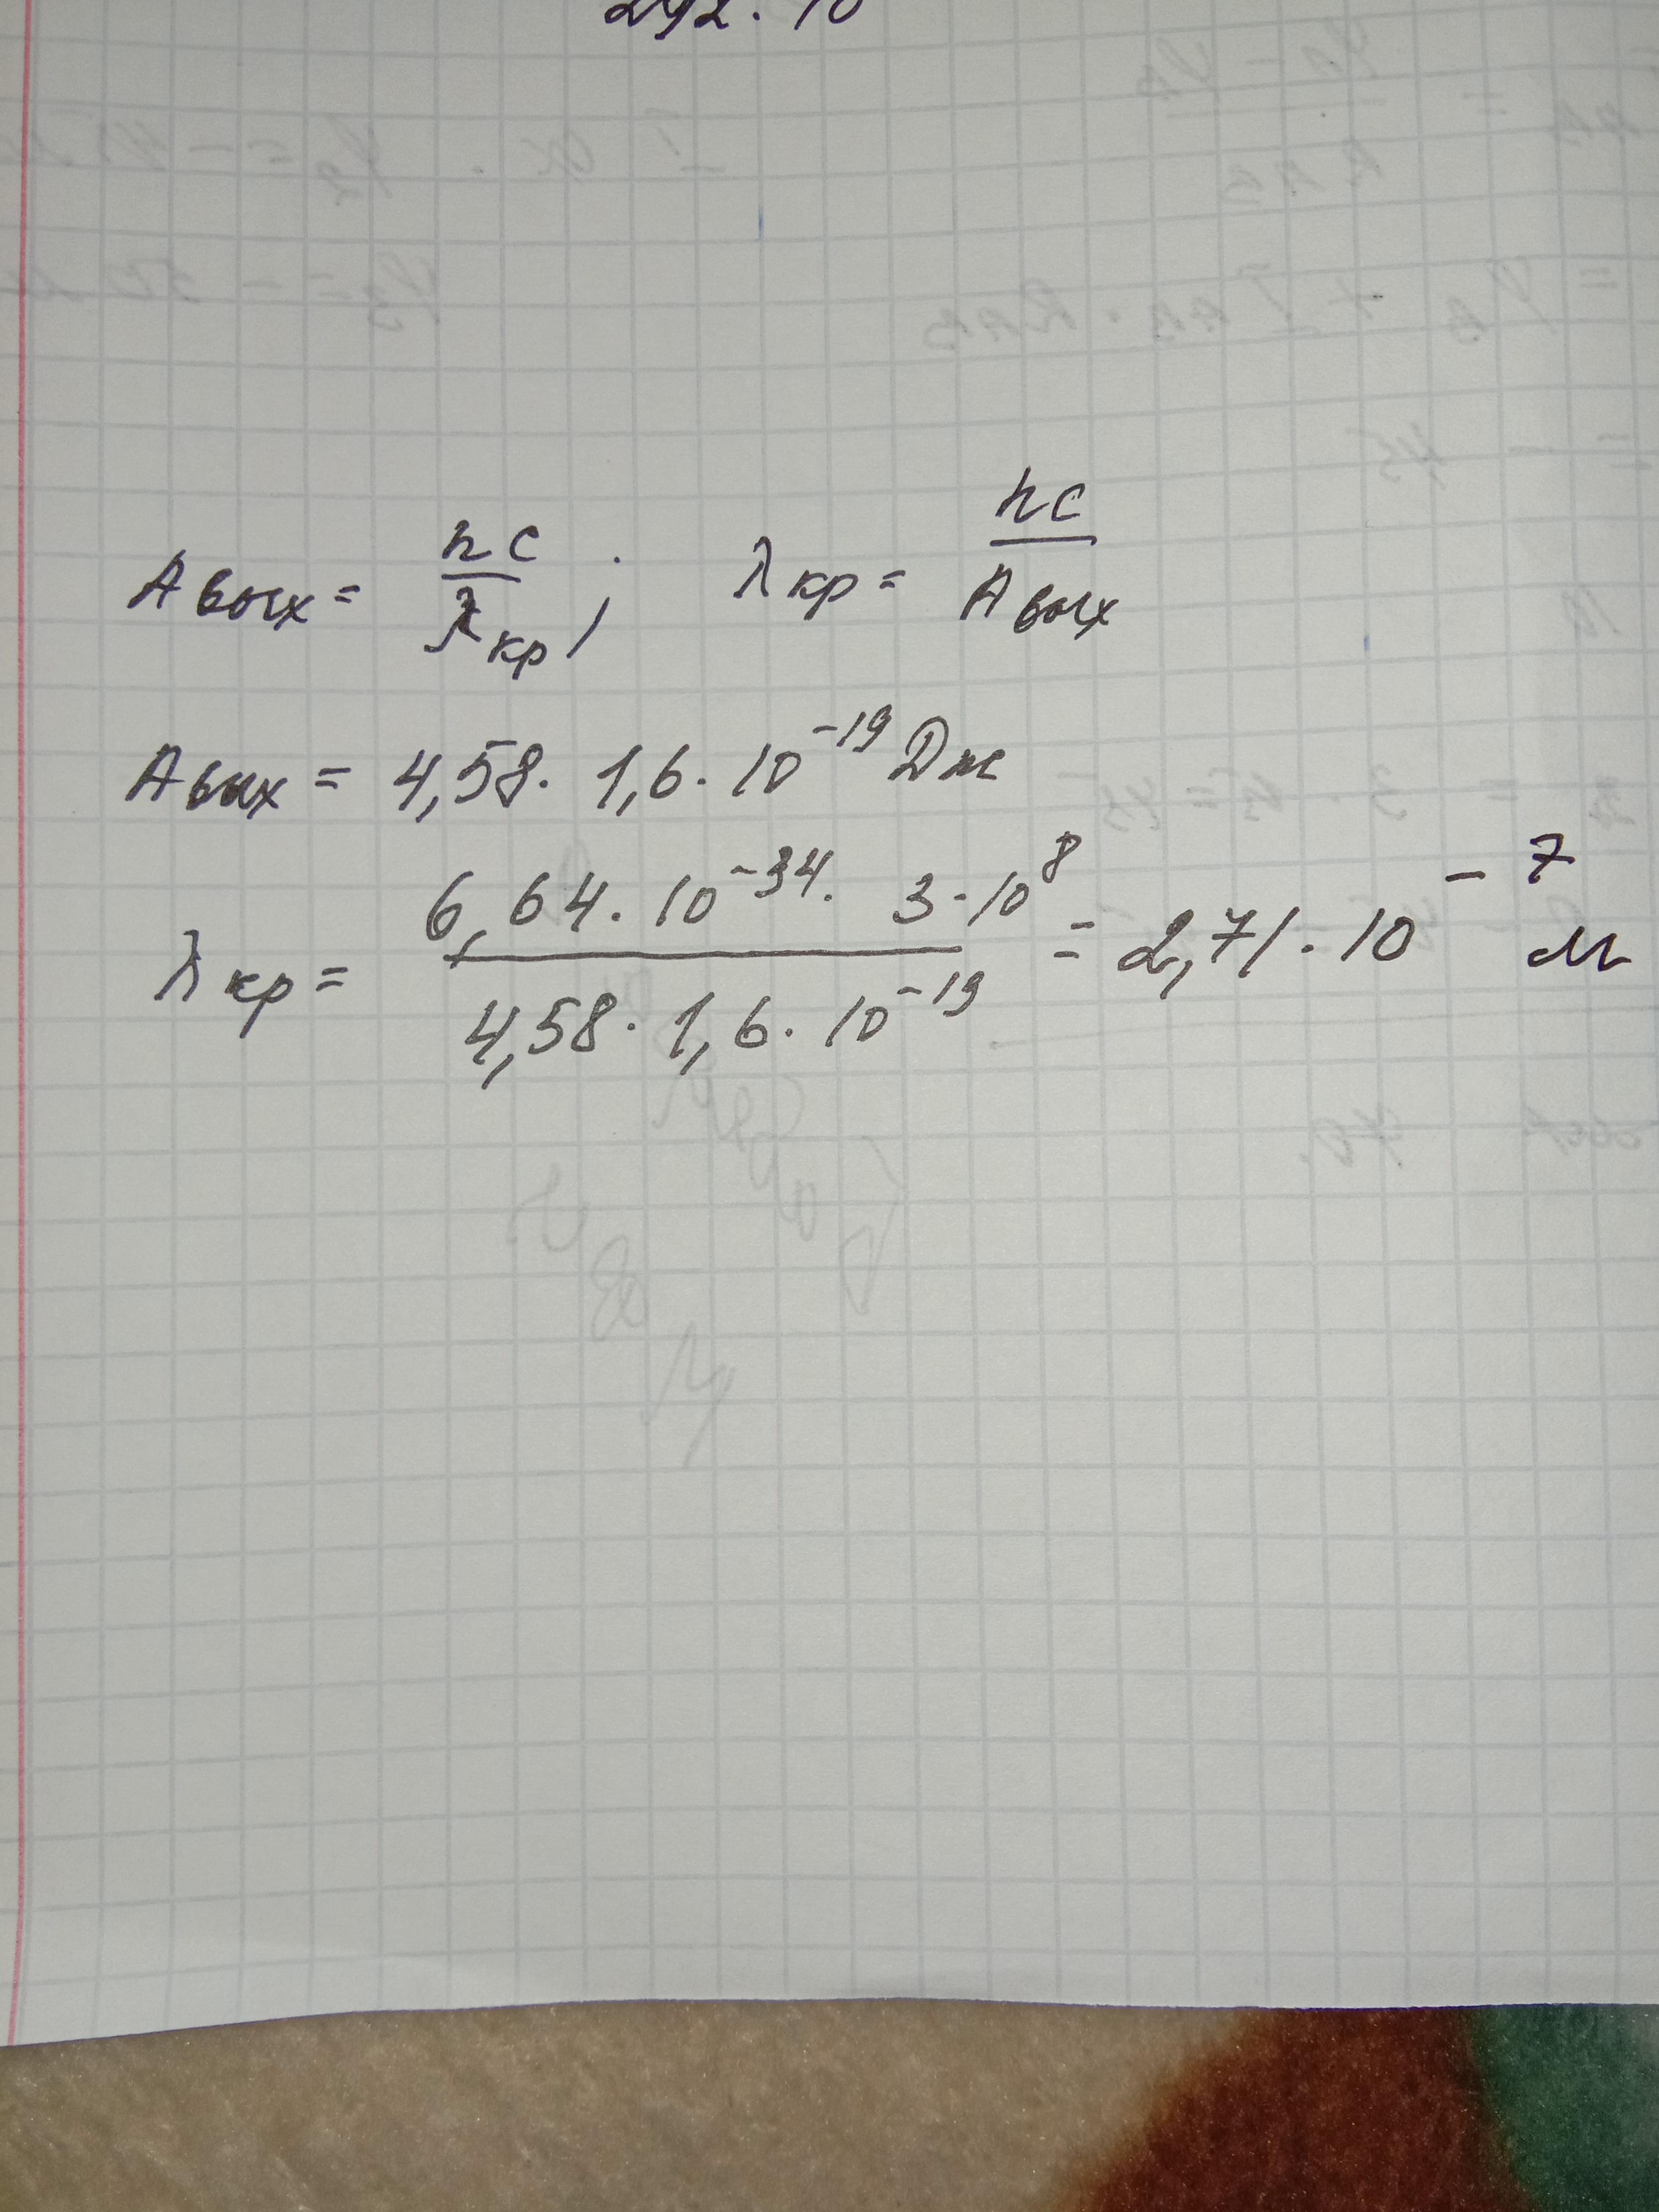 292 · 10
Aвых = hc / λкр ; λкр = hc / Aвых
Aвых = 4,58 · 1,6 · 10⁻¹⁹ Дж
λкр = 6,64 · 10⁻³⁴ · 3 · 10⁸ / 4,58 · 1,6 · 10⁻¹⁹ = 2,71 · 10⁻⁷ м